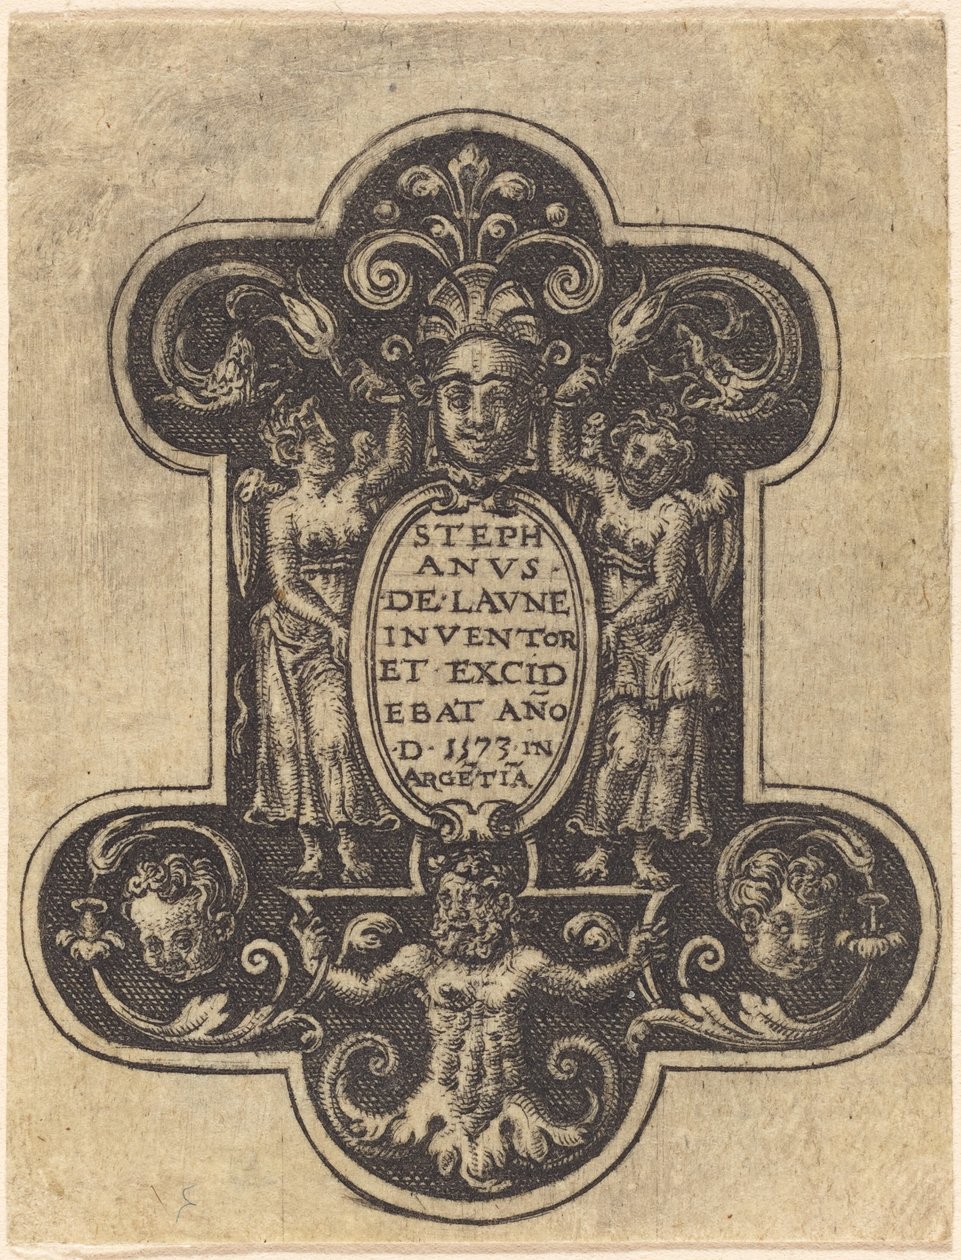 STEPH
ANVS·
DE·LAVNE
INVENTOR
ET·EXCID
EBAT AÑO
·D·1573·IN
ARGẼTIÃ